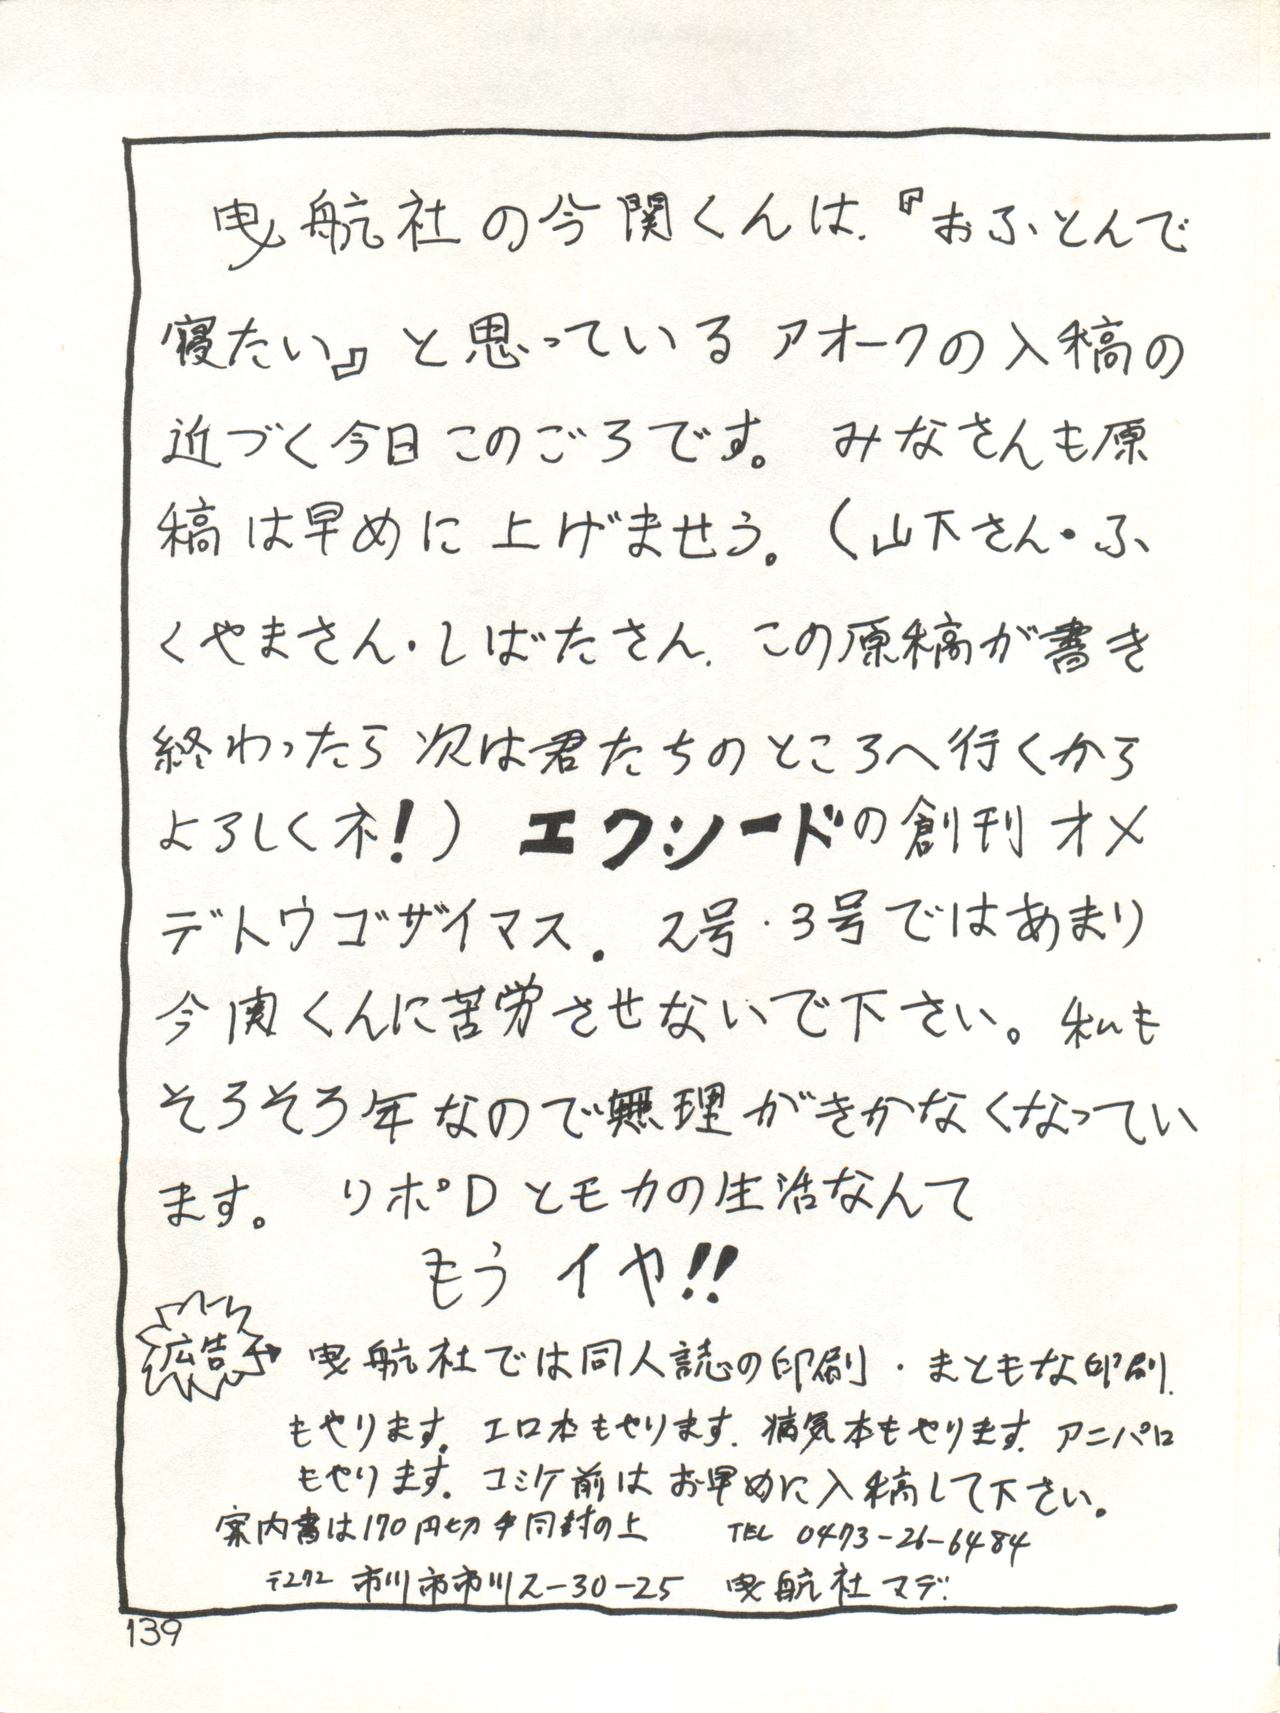 曳航社の今関くんは、『おふとんで
寝たい』と思っているアオークの入稿の
近づく今日このごろです。みなさんも原
稿は早めに上げませう。(山下さん・ふ
くやまさん・しばたさん、この原稿が書き
終わったら次は君たちのところへ行くから
よろしくネ!)エクシードの創刊オメ
デトウゴザイマス。2号・3号ではあまり
今関くんに苦労させないで下さい。私も
そろそろ年なので無理がきかなくなってい
ます。リポDとモカの生活なんて
もうイヤ!!
広告 曳航社では同人誌の印刷・まともな印刷
もやります。エロ本もやります。病気本もやります。アニパロ
もやります。コミケ前はお早めに入稿して下さい。
案内書は170円切手同封の上 TEL 0473-26-6484
〒272 市川市市川2-30-25 曳航社マデ.
139